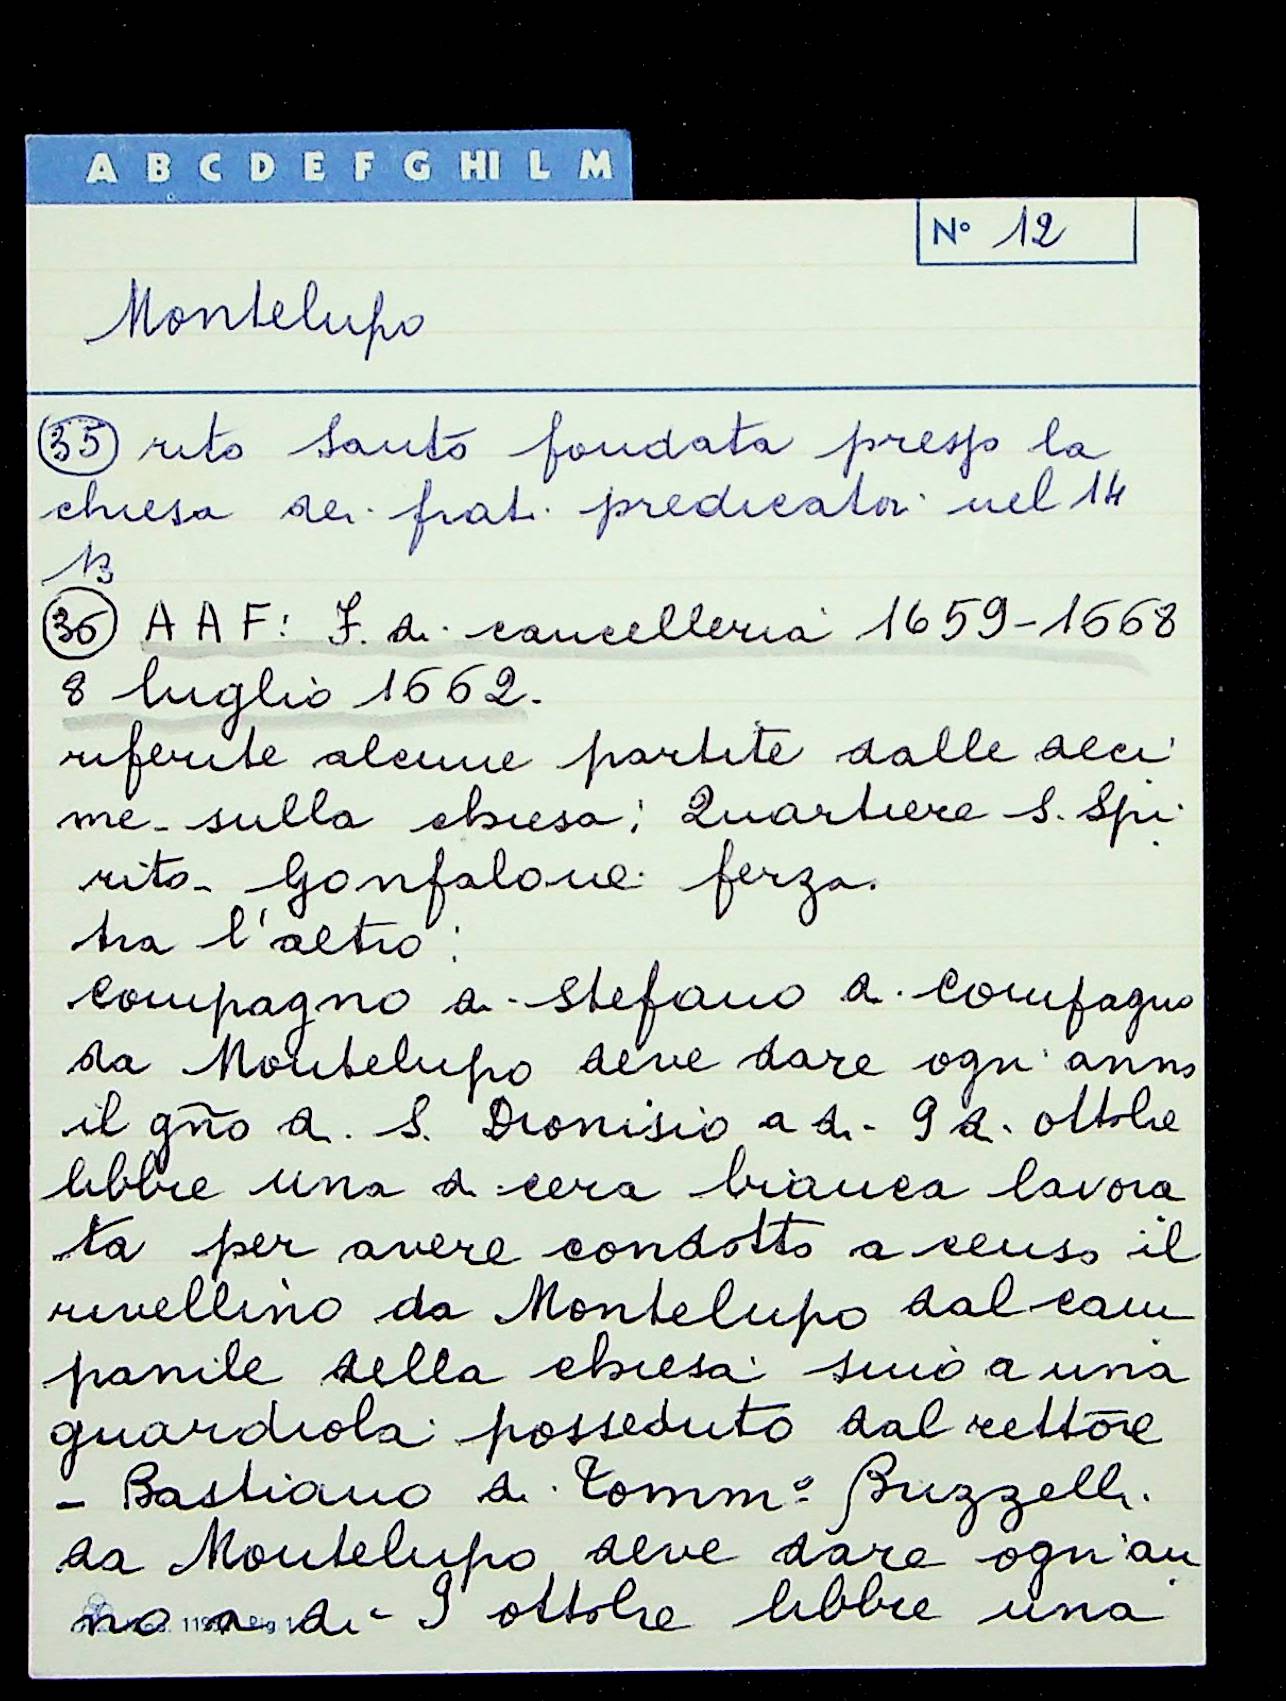 A B C D E F G HI L M
N° 12
Montelupo
35 rito Santo fondata presso la
chiesa dei frati predicatori nel 14
13
36 A A F: F. di cancelleria 1659-1668
8 luglio 1662.
riferite alcune partite dalle deci
me sulla chiesa; Quartiere S. Spi
rito - Gonfalone ferza.
tra l'altro:
Compagno di Stefano di Compagno
da Montelupo deve dare ogni anno
il gn̄o di S. Dionisio a di 9 di ottobre
libbre una di cera bianca lavora
ta per avere condotto a censo il
rivellino da Montelupo dal cam
panile della chiesa sino a una
guardiola posseduto dal rettore
- Bastiano di Tomm° Buzzelli
da Montelupo deve dare ogni an
no a di 9 ottobre libbre una